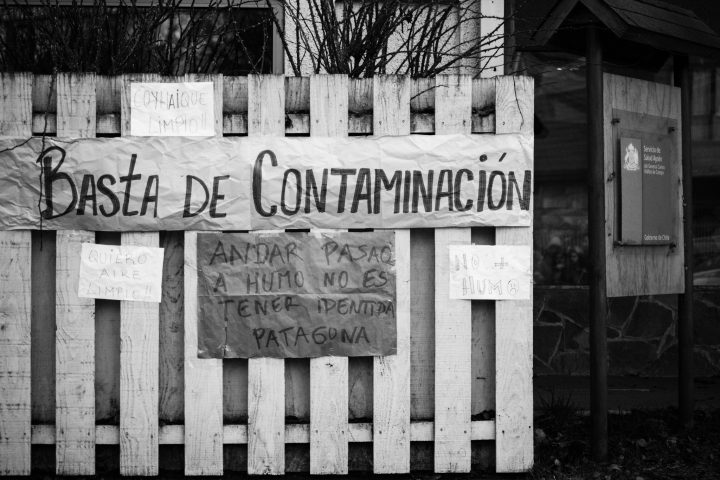 COYHAIQUE
LIMPIO!!
BASTA DE CONTAMINACIÓN
QUIERO
AIRE
LIMPIO!!
ANDAR PASAO
A HUMO NO ES
TENER IDENTIDA
PATAGONA
NO +
HUMO
Servicio de
Salud Aysén
Gobierno de Chile